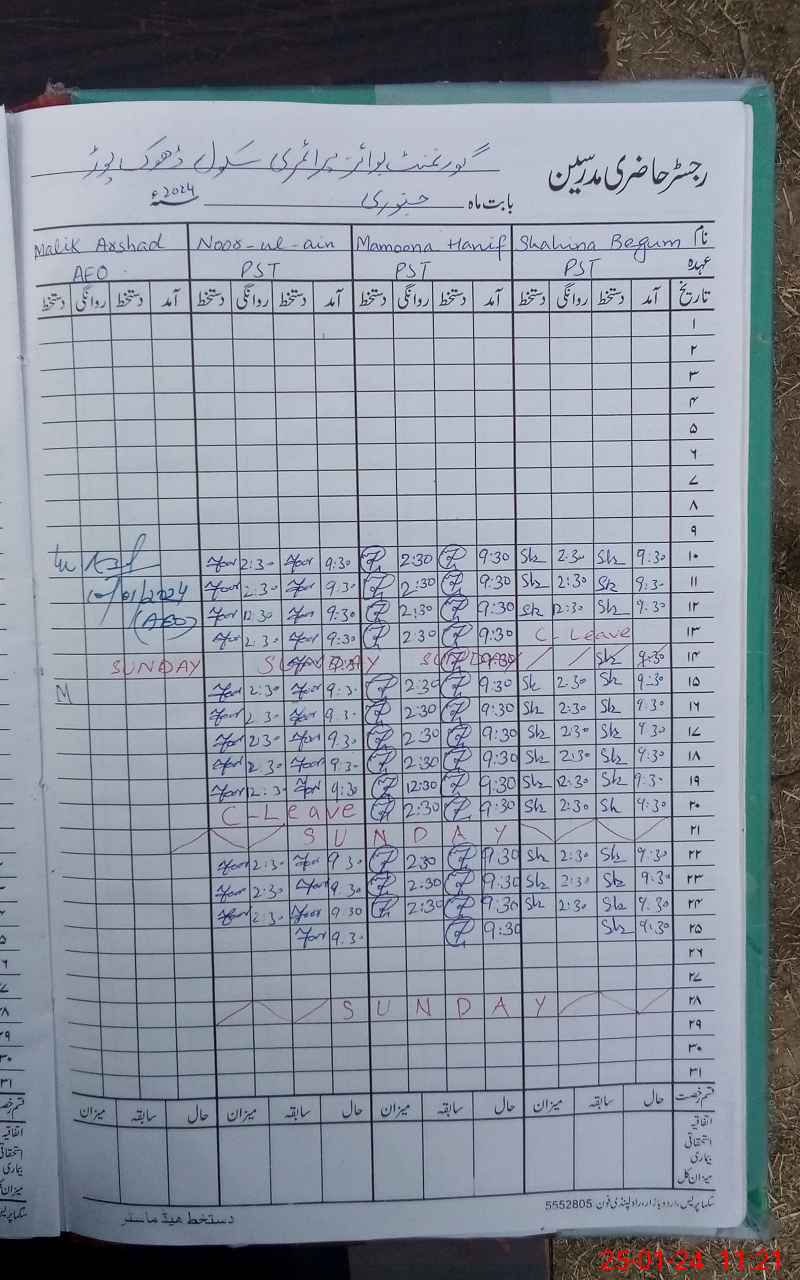 رجسٹر حاضری مدرسین گورنمنٹ بوائز پرائمری سکول ڈھوک
بابت ماہ جنوری 2024ء
نام Shahina Begum Mamoona Hanif Noor-ul-ain Malik Arshad
عہدہ PST PST PST AEO
تاریخ آمد دستخط روانگی دستخط آمد دستخط روانگی دستخط آمد دستخط روانگی دستخط آمد دستخط روانگی دستخط
۱
۲
۳
۴
۵
۶
۷
۸
۹
۱۰ 9:30 Sh 2:30 Sh 9:30 2:30 9:30 Noor 2:30 Noor
۱۱ 9:30 Sh 2:30 Sh 9:30 2:30 9:30 Noor 2:30 Noor 10/01/2024
۱۲ 9:30 Sh 12:30 Sh 9:30 2:30 9:30 Noor 12:30 Noor (AEO)
۱۳ C-Leave 9:30 2:30 9:30 Noor 2:30 Noor
۱۴ 9:30 Sh SUNDAY SUNDAY SUNDAY
۱۵ 9:30 Sh 2:30 Sh 9:30 2:30 9:30 Noor 2:30 Noor M
۱۶ 9:30 Sh 2:30 Sh 9:30 2:30 9:30 Noor 2:30 Noor
۱۷ 9:30 Sh 2:30 Sh 9:30 2:30 9:30 Noor 2:30 Noor
۱۸ 9:30 Sh 2:30 Sh 9:30 2:30 9:30 Noor 2:30 Noor
۱۹ 9:30 Sh 12:30 Sh 9:30 12:30 9:30 Noor 12:30 Noor
۲۰ 9:30 Sh 2:30 Sh 9:30 2:30 C-Leave
۲۱ SUNDAY
۲۲ 9:30 Sh 2:30 Sh 9:30 2:30 9:30 Noor 2:30 Noor
۲۳ 9:30 Sh 2:30 Sh 9:30 2:30 9:30 Noor 2:30 Noor
۲۴ 9:30 Sh 2:30 Sh 9:30 2:30 9:30 Noor 2:30 Noor
۲۵ 9:30 Sh 9:30 9:30 Noor
۲۶
۲۷
۲۸ SUNDAY
۲۹
۳۰
۳۱
قسم رخصت حال سابقہ میزان حال سابقہ میزان حال سابقہ میزان حال سابقہ میزان
اتفاقیہ
استحقاقی
بیماری
میزان کل
دستخط ہیڈ ماسٹر
سکھا پریس، اردو بازار، راولپنڈی فون: 5552805
25-01-24 11:21